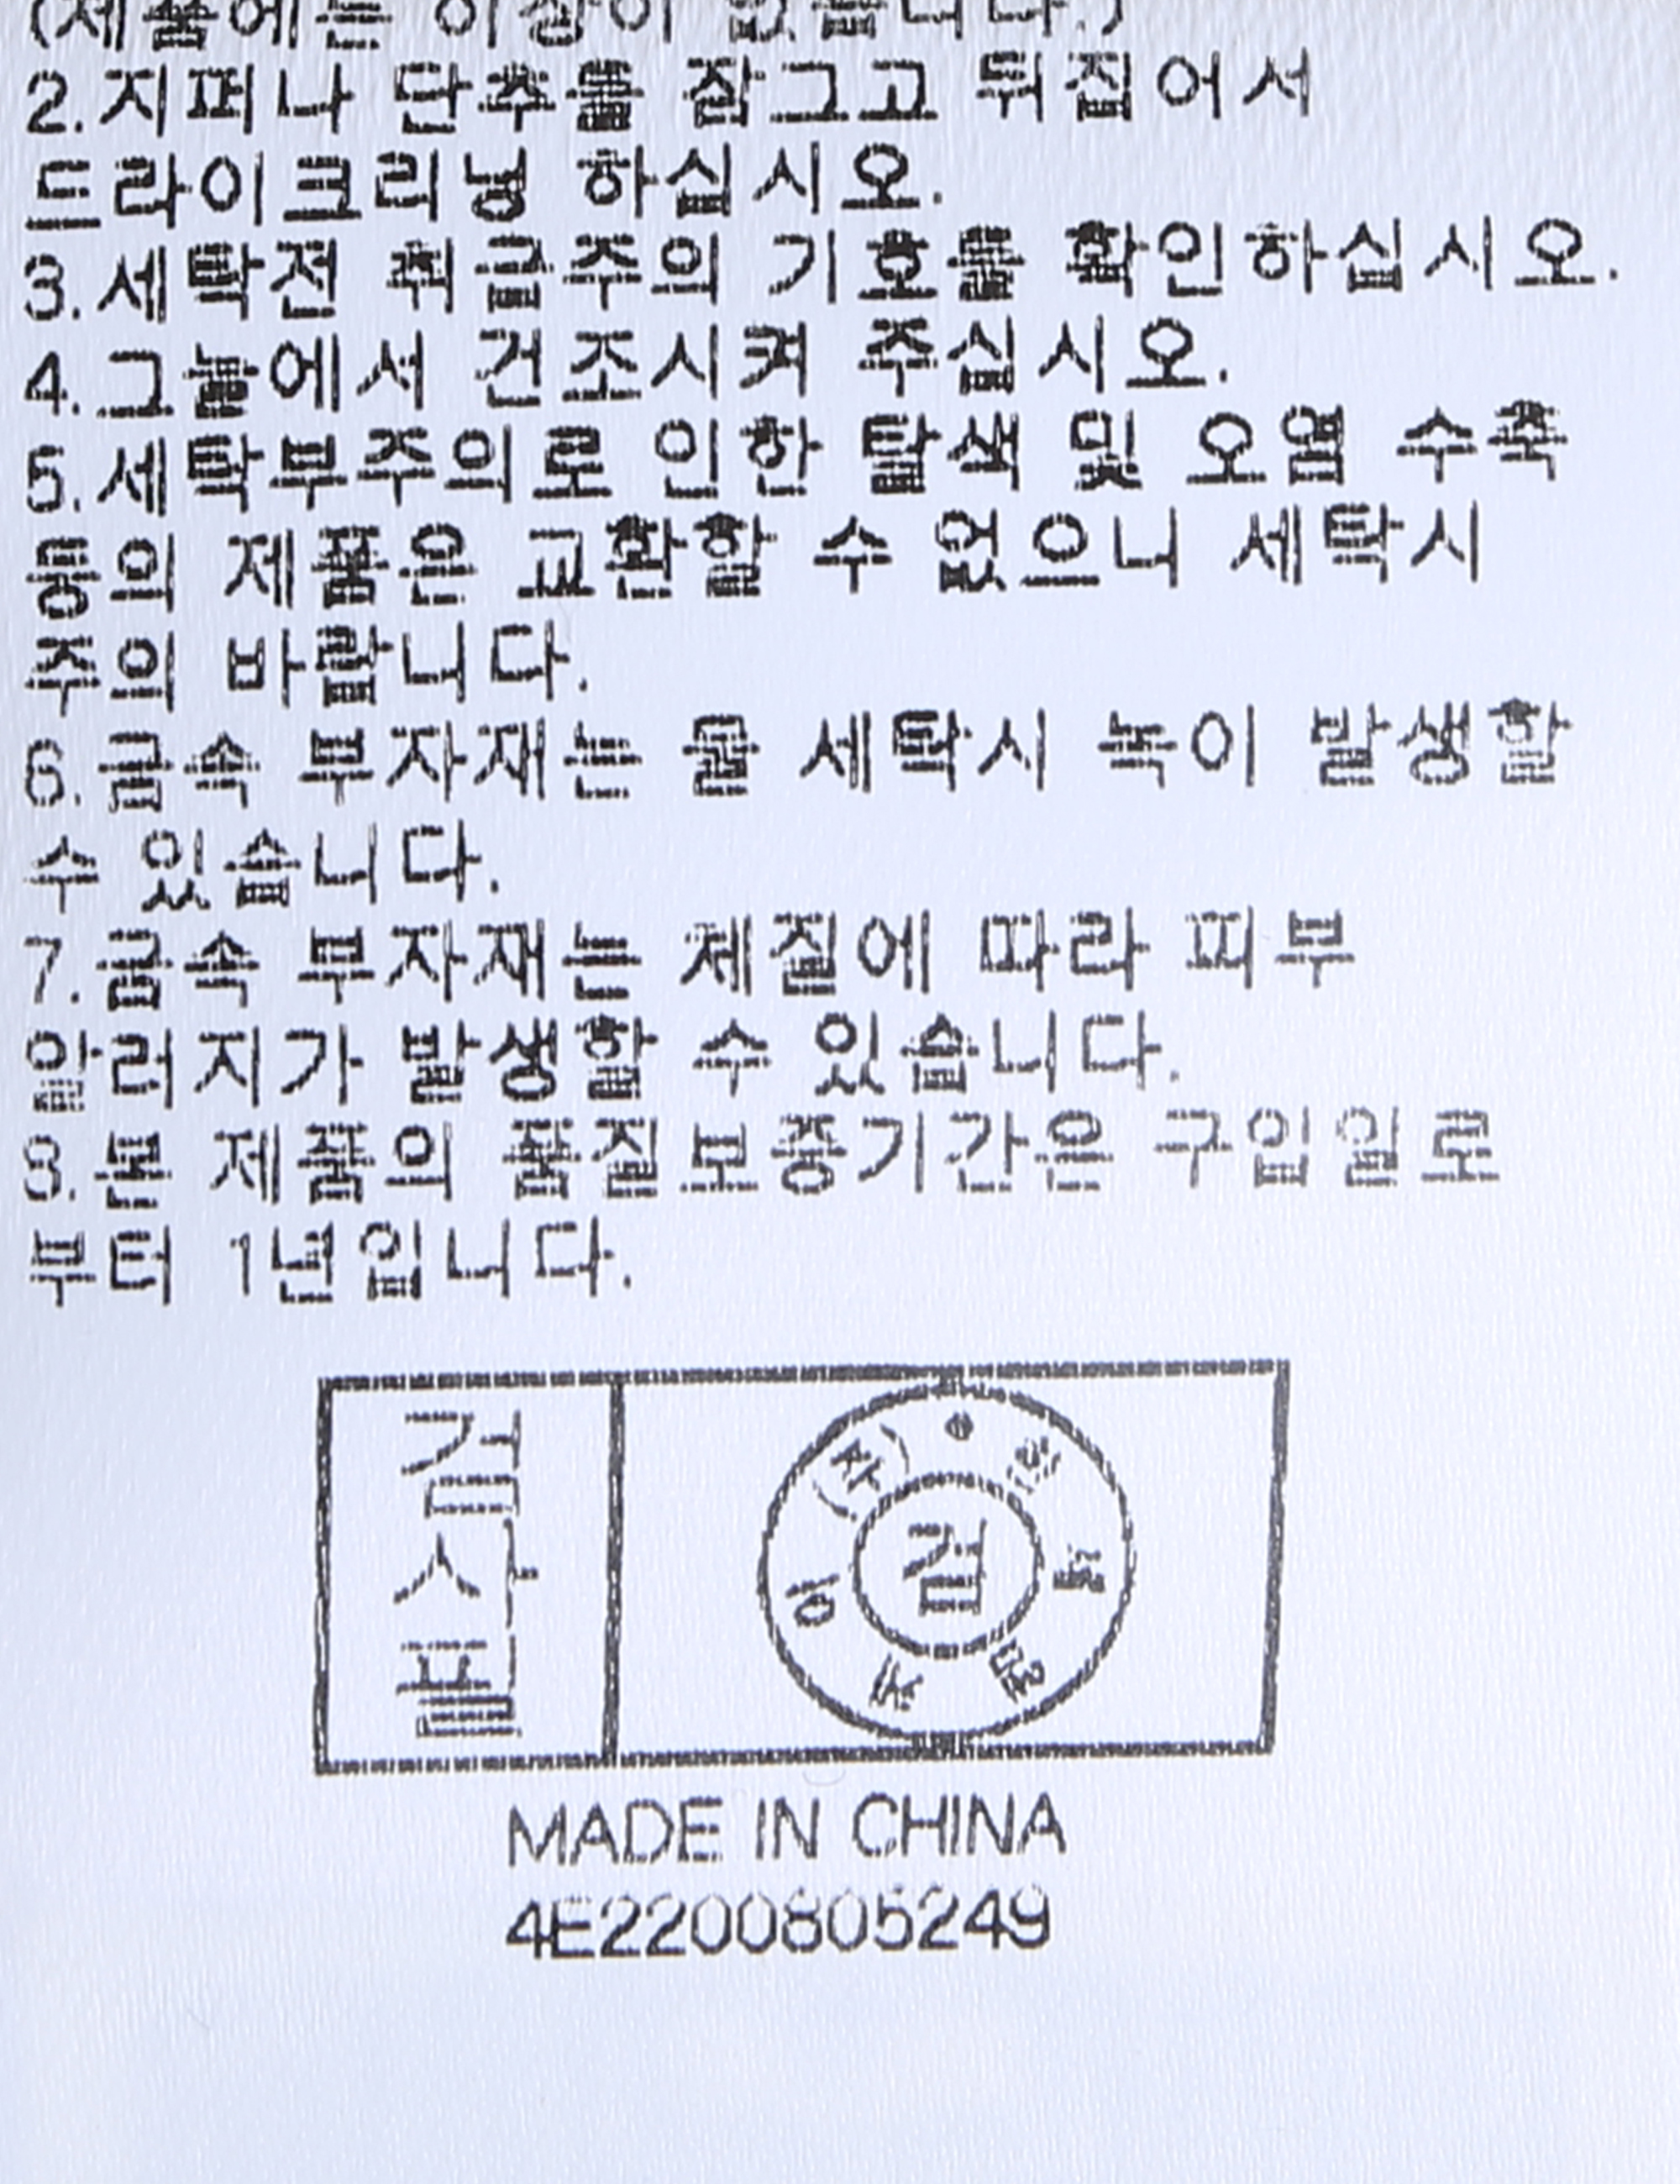 (제품에는 이상이 없습니다.)
2.지퍼나 단추를 잠그고 뒤집어서
드라이크리닝 하십시오.
3.세탁전 취급주의 기호를 확인하십시오.
4.그늘에서 건조시켜 주십시오.
5.세탁부주의로 인한 탈색 및 오염 수축
등의 제품은 교환할 수 없으니 세탁시
주의 바랍니다.
6.금속 부자재는 물 세탁시 녹이 발생할
수 있습니다.
7.금속 부자재는 체질에 따라 피부
알러지가 발생할 수 있습니다.
8.본 제품의 품질보증기간은 구입일로
부터 1년입니다.
검
사
필
검
MADE IN CHINA
4E2200805249